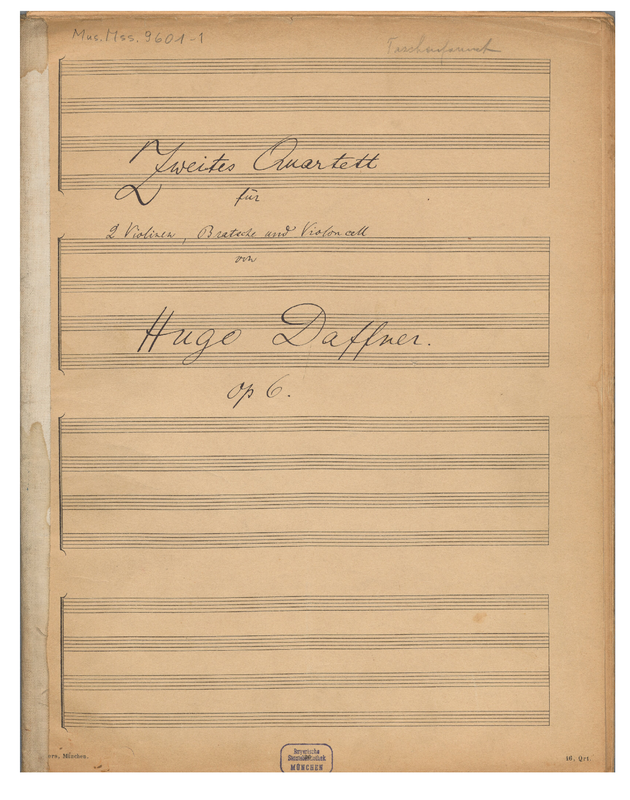 Mus.Mss. 9601-1
Taschenformat
Zweites Quartett
für
2 Violinen, Bratsche und Violoncell
von
Hugo Daffner.
op 6.
Bayerische
Staatsbibliothek
MÜNCHEN
München.
16.